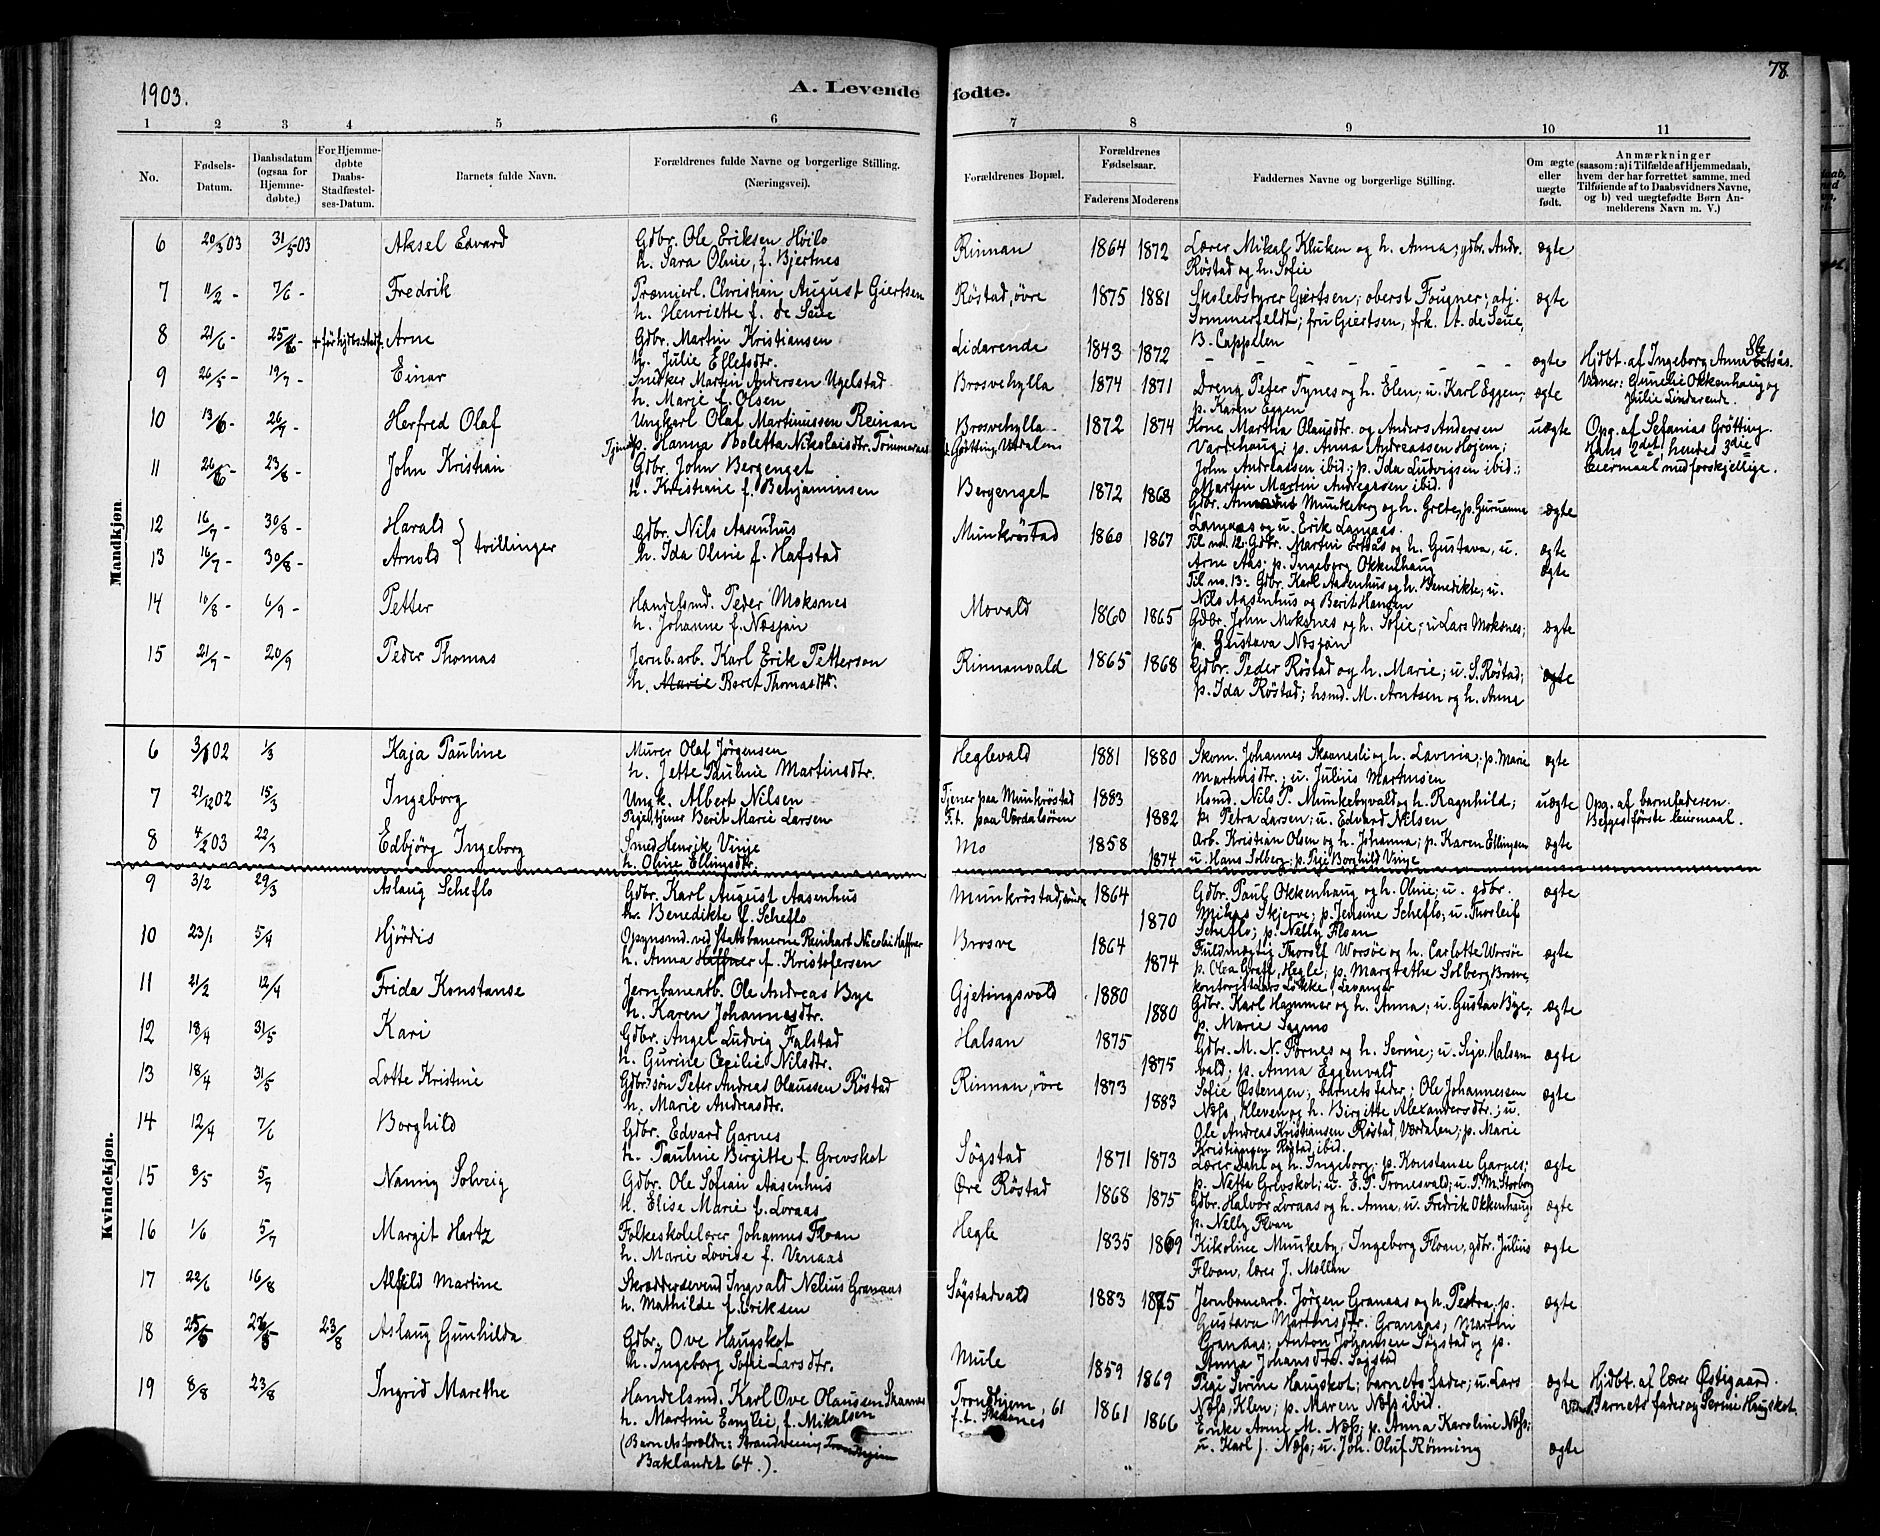 78
1903.
A. Levende fødte.
1 2 3 4 5 6 7 8 9 10 11
No.
Fødsels-Datum.
Daabsdatum (ogsaa for Hjemme-døbte.)
For Hjemme-døbte Daabs-Stadfæstel-ses-Datum.
Barnets fulde Navn.
Forældrenes fulde Navne og borgerlige Stilling. (Næringsvei).
Forældrenes Bopæl.
Forældrenes Fødselsaar.
Faderens Moderens
Faddernes Navne og borgerlige Stilling.
Om ægte eller uægte født.
Anmærkninger
(saasom: a) i Tilfælde af Hjemmedaab,
hvem der har forrettet samme, med
Tilføiende af to Daabsvidners Navne,
og b) ved uægtefødte Børn An-
melderens Navn m. V.)
Mandkjøn
6 20/3 03 31/5 03 Aksel Edvard Gdbr. Ole Eriksen Höilo Rinnan 1864 1872 Lærer Mikal Kluken og h. Anna; gdbr. Andr. ægte
h. Sara Oline, f. Bjertnes Röstad og h. Sofie
7 11/2 - 7/6 - Fredrik Præmierl. Christian August Giertsen Röstad, övre 1875 1881 Skolebstyrer Giertsen; oberst Fougner; adj. ægte
h. Henriette f. de Seue Sommerfeldt; fru Giertsen, frk. M. de Seue,
B. Cappelen
8 21/6 - 25/6 - Arne Gdbr. Martin Kristiansen Lidarende 1843 1872 - - - - - - ægte Hjdbt. af Ingeborg Anna
h. Julie Ellefsdtr. Vidner: Gunelie Okkenhaug og
Julie Lindarende.
9 26/5 - 19/7 - Einar Snedker Martin Andersen Ugelstad Brosvehylla 1874 1871 Dreng Peter Tynes og h. Elen; u. Karl Eggen; ægte
h. Marie f. Olsen p. Karen Eggen
10 13/6 - 26/7 - Herfred Olaf Ungkarl Olaf Martinussen Reinan Brosvehylla 1872 1874 Kone Martha Olausdtr. og Anders Andersen uægte Opg. af Sefanias Grötting.
Tjenestp. Hanna Boletta Nikolaisdtr. Tömmeraas Götting, Værdalen Vardehaug; p. Anna Andreassen Hojem; Hans 2det, hendes 3die
John Andreassen ibid.; p. Ida Ludvigsen ibid.; leiermaal med forskjellige.
Martin Martin Andreassen ibid.
11 26/6 23/8 - John Kristian Gdbr. John Bergenget Bergenget 1872 1868 Munkeberg og h. Grete; p. Gurianna ægte
h. Kristiane f. Benjaminsen Langaas og u. Erik Langaas.
12 16/7 - 30/8 - Harald } tvillinger Gdbr. Nils Aasenhus Munkröstad 1860 1867 Til no. 12: Gdbr. Martin Ertsås og h. Gustava, u. ægte
Arne Aas; p. Ingeborg Okkenhaug
13 16/7 - 30/8 - Arnold h. Ida Oline f. Hafstad Til no. 13: Gdbr. Karl Aasenhus og h. Benedikte; u. ægte
Nils Aasenhus og Berit Hansen
14 10/8 - 6/9 - Petter Handelsmd. Peder Moksnes Movald 1860 1865 Gdbr. John Moksnes og h. Sofie; u. Lars Moksnes; ægte
h. Johanne f. Næsjan p. Gustava Næsjan
15 21/7 - 20/9 Peder Thomas Jernb.arb. Karl Erik Petterson Rinnanvald 1865 1868 Gdbr. Peder Röstad og h. Marie; u. S. Röstad; ægte
h. Marie Beret Thomasdtr. p. Ida Röstad; hsmd. M. Arntsen og h. Anna
Kvindekjøn.
6 02 1/3 Kaja Pauline Murer Olaf Jörgensen Heglevald 1881 1880 Skom. Johannes Skaanesli og h. Lavina; p. Marie ægte
h. Jette Pauline Martinsdtr. Martinsdtr.; u. Julius Martinsen
7 21/12 02 15/3 Ingeborg Ungk. Albert Nilsen Tjener paa Munkröstad 1883 Hsmd. Nils P. Munkebyvald og h. Ragnhild; uægte Opg. af barnefaderen.
Pige, tjener Berit Marie Larsen F.t. paa Værdalsören 1882 p. Petra Larsen; u. Edvard Nilsen Begges förste leiermaal.
8 4/2 03 22/3 Edbjörg Ingeborg Smed Henrik Vinje Mo 1858 Arb. Kristian Olsen og h. Johanna; p. Karen Ellingsen ægte
h. Oline Ellingsdtr. 1874 u. Hans Solberg; p. Pige Borghild Vinje
9 3/2 29/3 Aslaug Scheflo Gdbr. Karl August Aasenhus Munkröstad, 1864 Gdbr. Paul Okkenhaug og h. Oline; u. gdbr. ægte
h. Benedikte f. Scheflo 1870 Mikas Skjerve; p. Jensine Scheflo; u. Thorleif
Scheflo; p. Nelly Floan
10 23/1 5/4 Hjördis Opsynsmd. ved statsbanerne Reinhart Nicolai Haffner Brosve 1864 Fuldmægtig Thorolf Worsöe og h. Carlotte Worsöe ægte
h. Anna Haffner f. Kristofersen 1874 p. Olea Graff, Hegle; p. Margrethe Solberg, Brosve,
kontorist Lökke, Levanger
11 21/2 12/4 Frida Konstanse Jernbanearb. Ole Andreas Bye Gjetingsvold 1880 Gdbr. Karl Hammer og h. Anna; u. Gustav Bye; ægte
h. Karen Johannesdtr. 1880 p. Marie Sagmo
12 18/4 31/5 Kari Gdbr. Angel Ludvig Falstad Halsan 1875 Gdbr. M. N. Fornes og h. Serine; u. Sigv. Halsan ægte
h. Gurine Cecilie Nilsdtr. 1875 vald; p. Anna Eggenvald
13 18/4 31/5 Lotte Kristine Gdbr.sön Peter Andreas Olausen Röstad Rinnan, övre 1873 Sofie Östengen; barnets fader; Ole Johannessen ægte
h. Marie Andreasdtr. 1883 Næss, Kleven og h. Birgitte Alexandersdtr.; u.
Ole Andreas Kristiansen Röstad, Værdalen; p. Marie
Kristiansen Röstad ibid.
14 12/4 7/6 Borghild Gdbr. Edvard Garnes Sögstad 1871 1873 Lærer Dahl og h. Ingeborg; p. Konstanse Garnes; ægte
h. Pauline Birgitte f. Grevskot p. Nefta Grevskot; u. E. P. Tronesvald; u. P. M. Storborg
15 8/5 5/7 Nanny Solveig Gdbr. Ole Sofian Aasenhus Övre Röstad 1868 1875 Gdbr. Halvor Loraas og h. Anna, u. Fredrik Okkenhaug; ægte
h. Elise Marie f. Loraas p. Nelly Floan
16 1/6 5/7 Margit Hartz Folkeskolelærer Johannes Floan Hegle 1835 1869 Kikoline Munkeby; Ingeborg Floan, gdbr. Julius ægte
h. Marie Lovise f. Venaas Floan, lærer J. Mollan
17 22/6 16/8 Alfild Martine Skræddersvend Ingvald Nelius Granaas Sögstadvald 1883 1875 Jernbanearb. Jörgen Granaas og h. Petra; p. ægte
h. Mathilde f. Eriksen Gustava Martinsdtr. Granaas; Martin
Granaas; Anton Johansen Sögstad og p.
Anna Johansdtr. Sögstad
18 23/8 Aslaug Gunhilda Gdbr. Ove Haugskot Mule 1859 1869 Pige Serine Haugskot; barnets fader; u. Lars ægte Hjdbt. af lærer Östigaard.
h. Ingeborg Sofie Larsdtr. Næss, Klen; p. Maren Næss ibid. Vidner: Barnets fader og Serine Haugskot.
19 8/8 23/8 Ingrid Marethe Handelsmd. Karl Ove Olaussen Skaanes Trondhjem, 61 1861 1866 Enke Anne M. Næss; p. Anna Karoline Næss; ægte
h. Martine Emelie, f. Mikalsen f.t. Skaanes u. Karl J. Næss; u. Joh. Oluf Rönning
(Barnets forældre: Strandveiens, Trondhjem
Baklandet 64.).